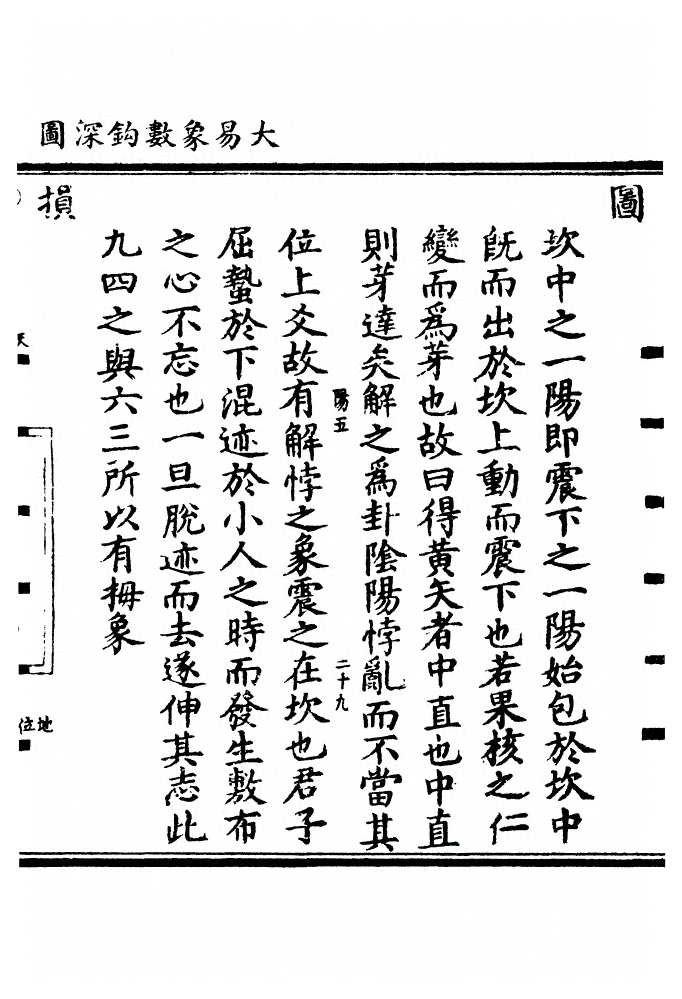 大易象數鈎深圖
圖
坎中之一陽即震下之一陽始包於坎中
旣而出於坎上動而震下也若果核之仁
變而爲芽也故曰得黃矢者中直也中直
則芽達矣解之爲卦陰陽悖亂而不當其
陽五
二十九
位上爻故有解悖之象震之在坎也君子
屈蟄於下混迹於小人之時而發生敷布
之心不忘也一旦脫迹而去遂伸其志此
九四之與六三所以有拇象
損
地
位